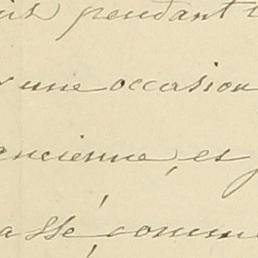 pendant
une occasion
ancienne, et
assé, comme